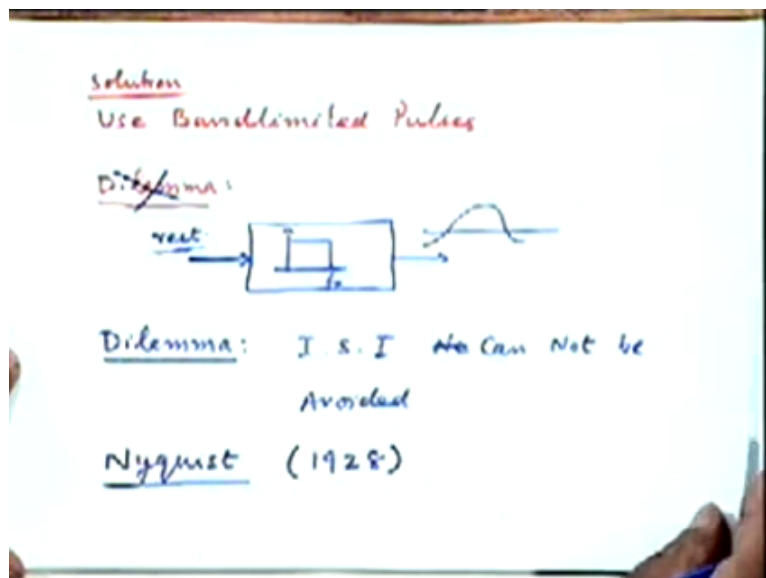 Solution
Use Bandlimited Pulses
Dilemma:
rect
Dilemma: I.S.I Can Not be
Avoided
Nyquist (1928)